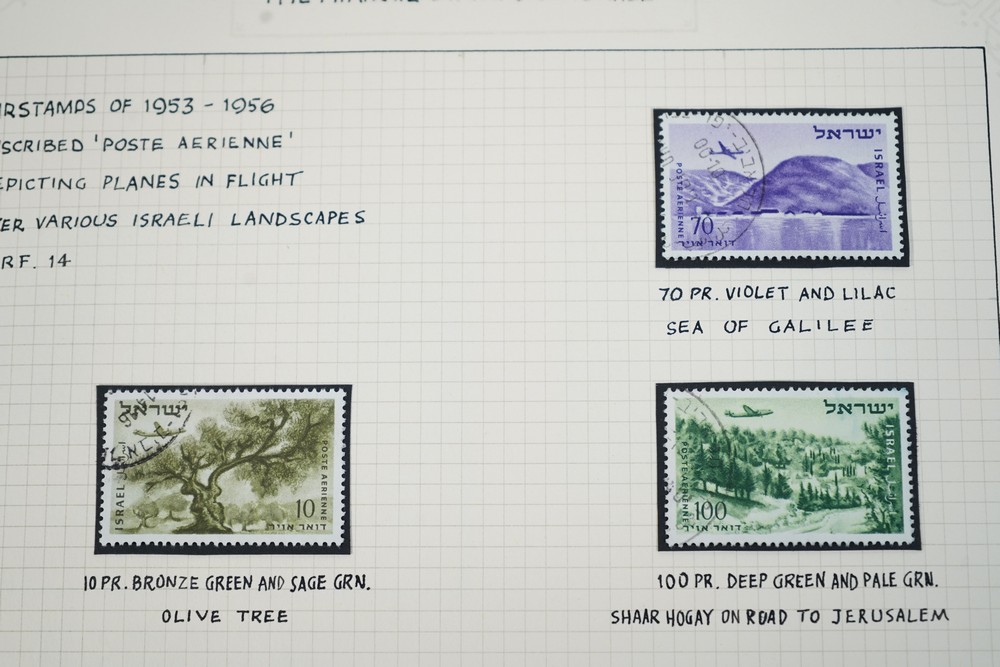 AIRSTAMPS OF 1953 - 1956
SCRIBED 'POSTE AERIENNE'
EPICTING PLANES IN FLIGHT
ER VARIOUS ISRAELI LANDSCAPES
RF. 14
ישראל
ISRAEL
اسرائيل
POSTE AERIENNE
70
דואר אויר
70 PR. VIOLET AND LILAC
SEA OF GALILEE
ישראל
ISRAEL
POSTE AERIENNE
10
דואר אויר
10 PR. BRONZE GREEN AND SAGE GRN.
OLIVE TREE
ישראל
ISRAEL
POSTE AERIENNE
100
דואר אויר
100 PR. DEEP GREEN AND PALE GRN.
SHAAR HOGAY ON ROAD TO JERUSALEM